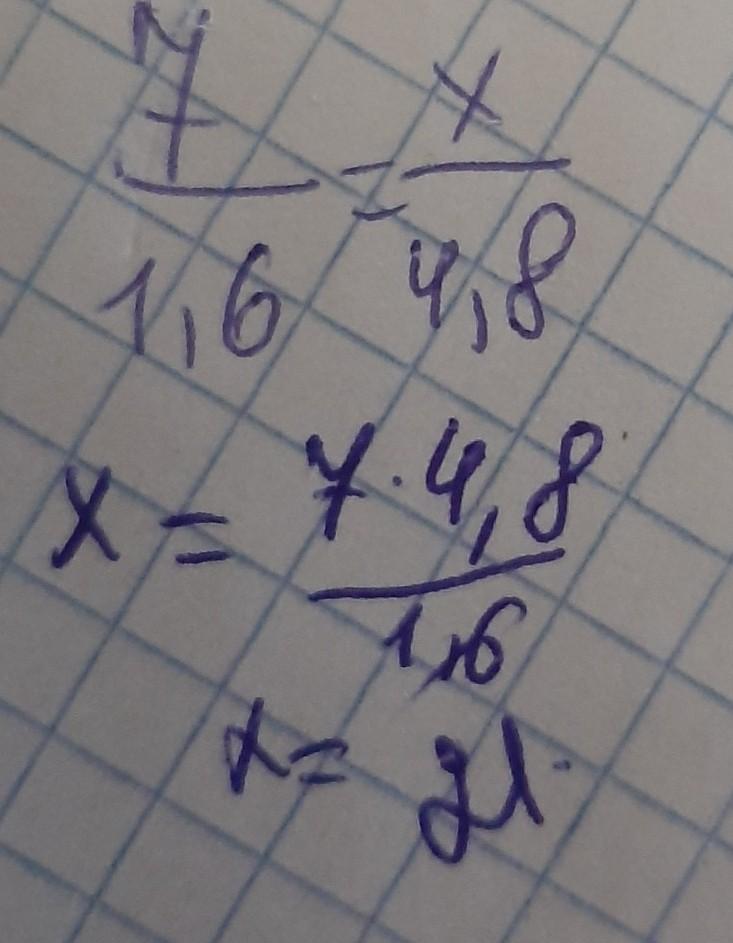 7/1,6 = x/4,8
x = 7·4,8/1,6
x = 21.